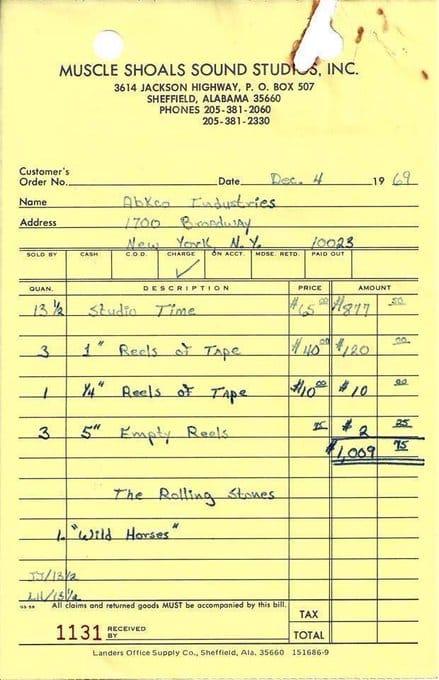 MUSCLE SHOALS SOUND STUDIOS, INC.
3614 JACKSON HIGHWAY, P. O. BOX 507
SHEFFIELD, ALABAMA 35660
PHONES 205-381-2060
205-381-2330
Customer's
Order No. Date Dec. 4 19 69
Name Abkco Industries
Address 1700 Broadway
New York, N.Y. 10023
SOLD BY CASH C.O.D. CHARGE ON ACCT. MDSE. RETD. PAID OUT
✓
QUAN. DESCRIPTION PRICE AMOUNT
13 ½ Studio Time $65 00 $877 50
3 1" Reels of Tape $40 00 $120 00
1 ¼" Reels of Tape $10 00 $10 00
3 5" Empty Reels 75 $2 25
$1,009 75
The Rolling Stones
1. "Wild Horses"
JJ/13½
LH/13½
All claims and returned goods MUST be accompanied by this bill.
TAX
1131 RECEIVED BY TOTAL
Landers Office Supply Co., Sheffield, Ala. 35660 151686-9